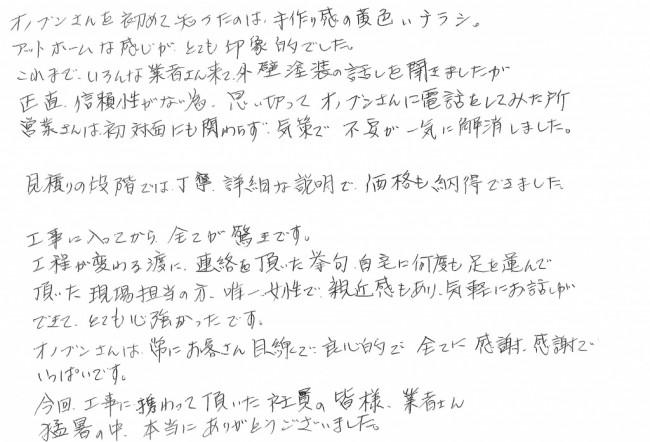 オノブンさんを初めて知ったのは、手作り感の黄色いチラシ。
アットホームな感じが、とても印象的でした。
これまで、いろんな業者さん来て、外壁塗装の話しを聞きましたが
正直、信頼性がない為、思い切って オノブンさんに電話をしてみた所
営業さんは、初対面にも関わらず、気さくで 不安が一気に解消しました。
見積りの段階では、丁寧、詳細な説明で、価格も納得できました
工事に入ってから、全てが驚きです。
工程が変わる度に、連絡を頂いた挙句、自宅に何度も足を運んで
頂いた 現場担当の方、唯一女性で、親近感もあり、気軽にお話しが
できて、とても心強かったです。
オノブンさんは、常にお客さん目線で、良心的で 全てに感謝、感謝で
いっぱいです。
今回、工事に携わって頂いた社員の皆様、業者さん
猛暑の中、本当にありがとうございました。